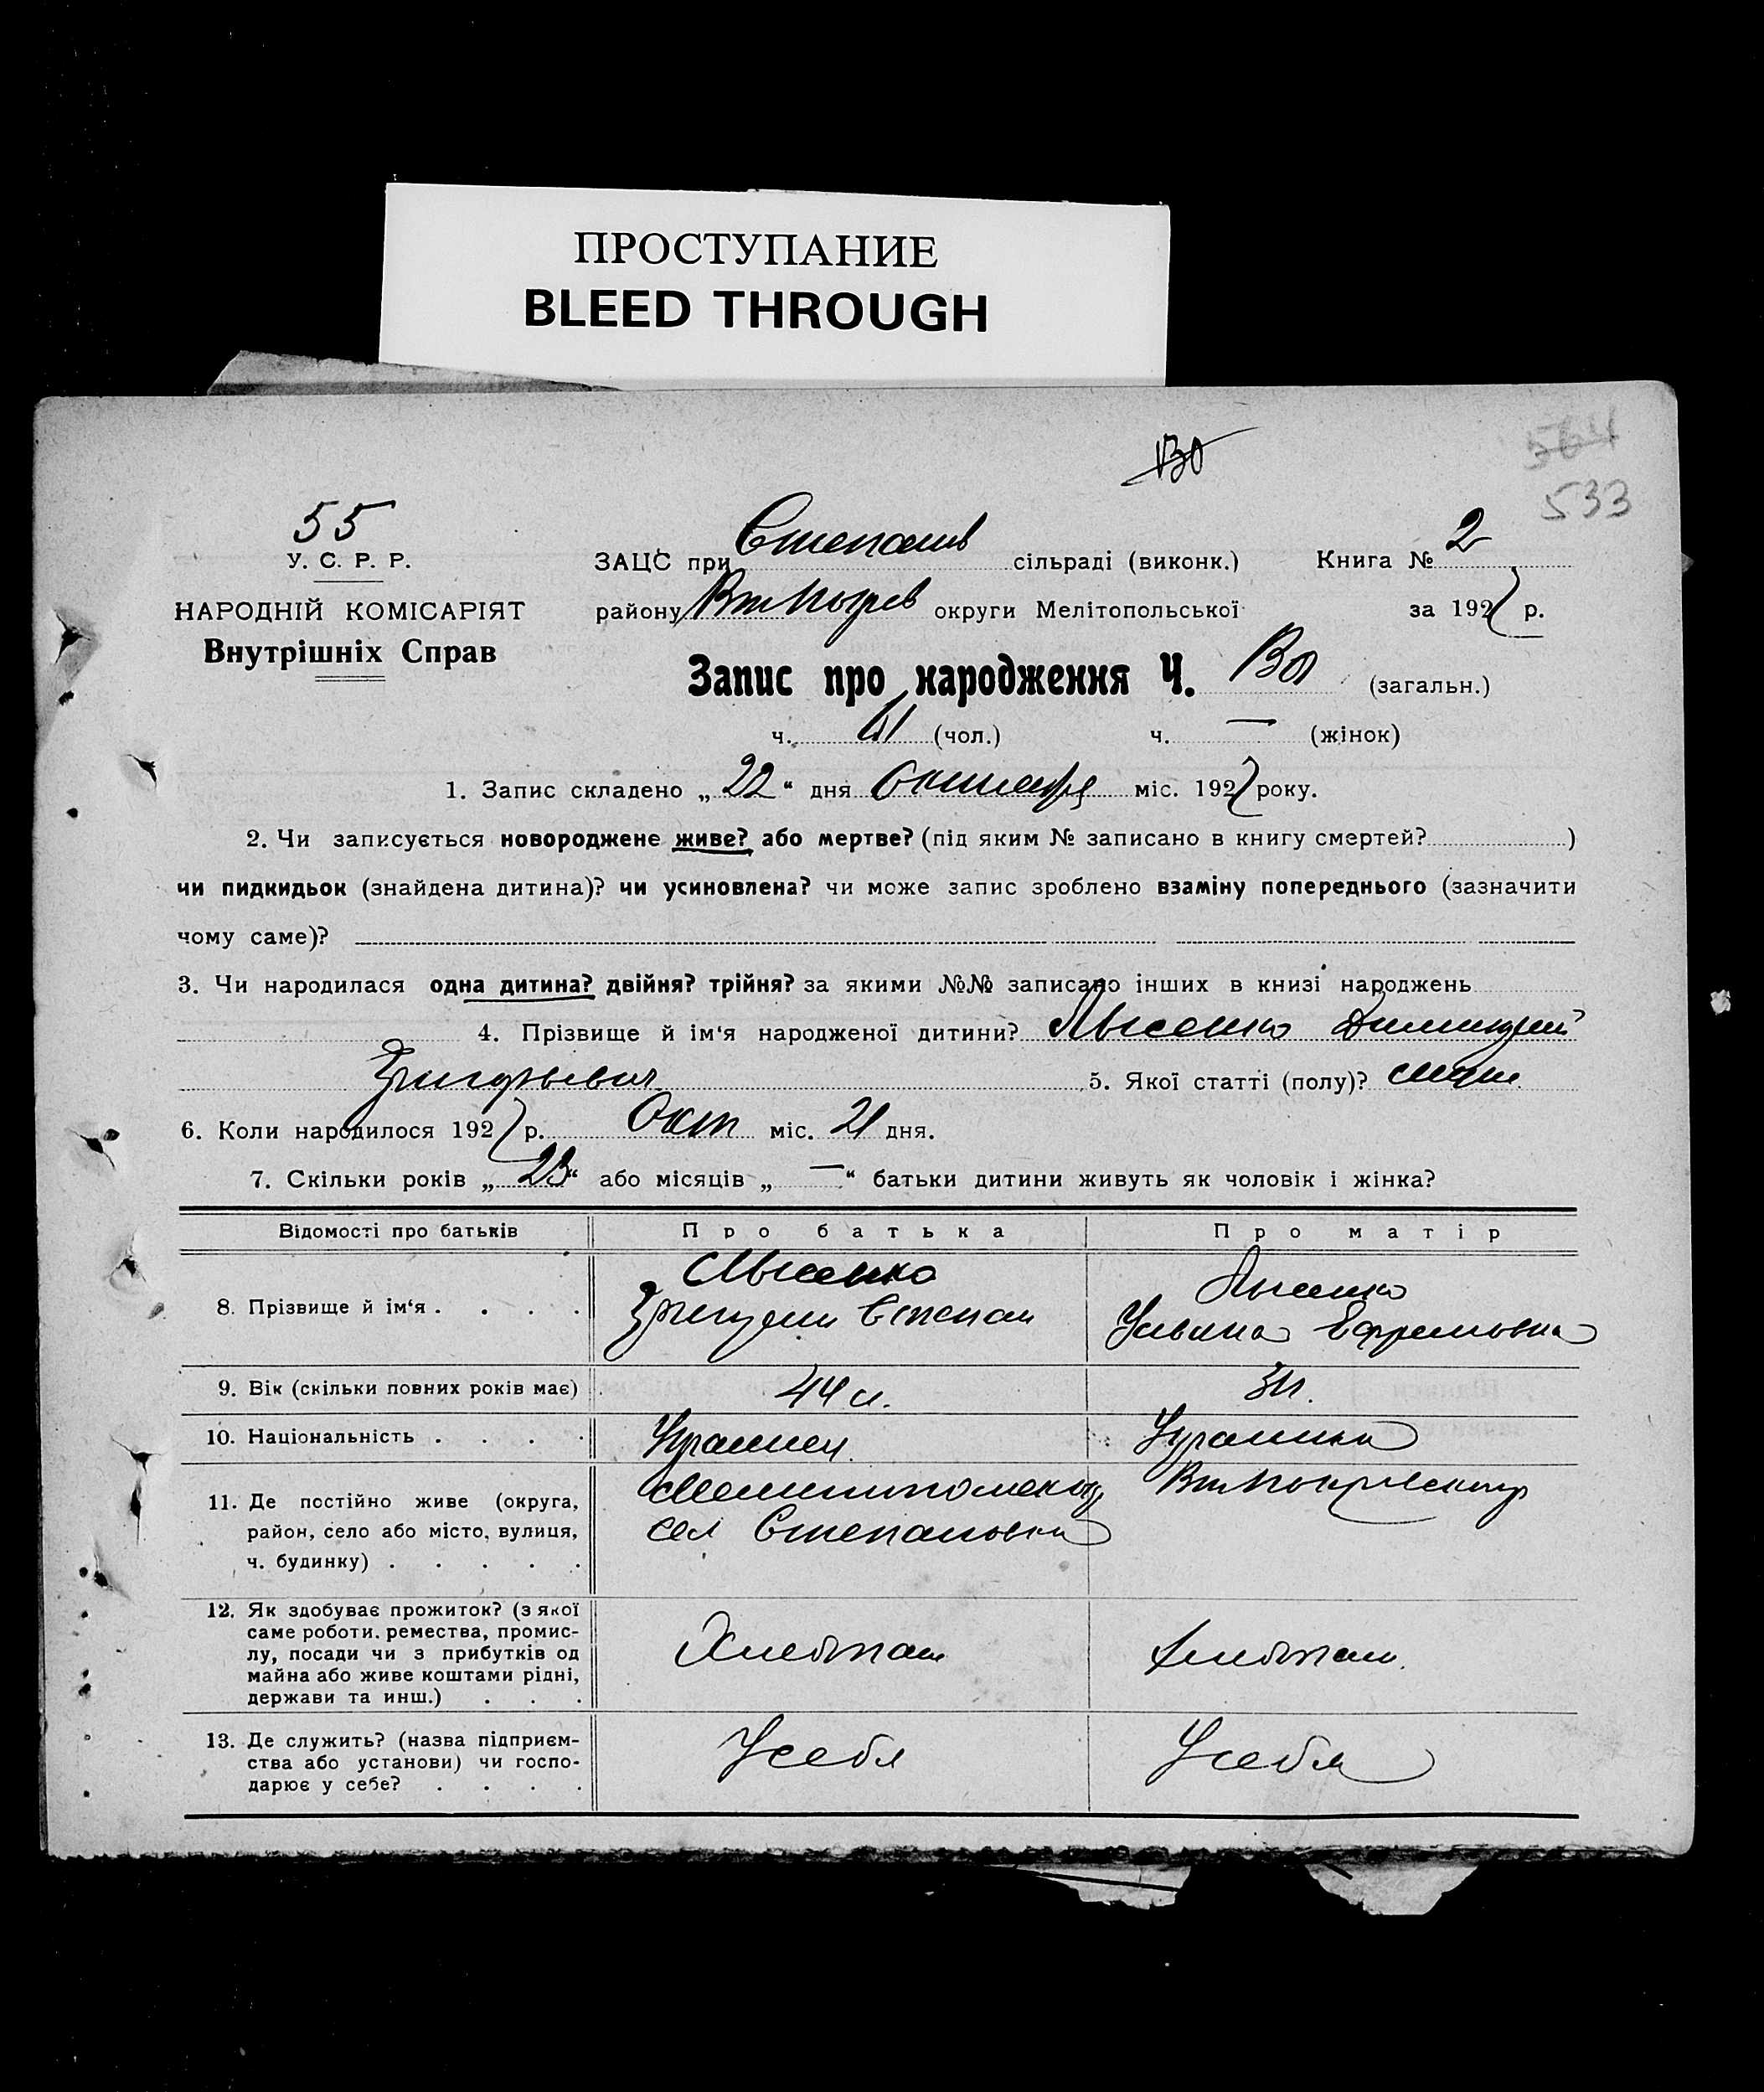 ПРОСТУПАНИЕ
BLEED THROUGH
130
564
533
55
У. С. Р. Р.
НАРОДНІЙ КОМІСАРІЯТ
Внутрішніх Справ
ЗАЦС при Степанів сільраді (виконк.) Книга № 2
району округи Мелітопольської за 1927 р.
Запис про народження Ч. (загальн.)
ч. 61 (чол.) ч. — (жінок)
1. Запис складено „22“ дня Октября міс. 1927 року.
2. Чи записується новороджене живе? або мертве? (під яким № записано в книгу смертей? )
чи пидкидьок (знайдена дитина)? чи усиновлена? чи може запис зроблено взаміну попереднього (зазначити
чому саме)?
3. Чи народилася одна дитина? двійня? трійня? за якими №№ записано інших в книзі народжень
4. Прізвище й ім‘я народженої дитини? Лысенко Димитрий
Григорьевич 5. Якої статті (полу)?
6. Коли народилося 1927 р. Окт міс. 21 дня.
7. Скільки років „23“ або місяців „—“ батьки дитини живуть як чоловік і жінка?
Відомості про батьків Про батька Про матір
8. Прізвище й ім‘я . . . . Лысенко Григорий Степан Лысенко Ульяна Ефремовна
9. Вік (скільки повних років має) 44 л.
10. Національність . . . . Украинец Украинка
11. Де постійно живе (округа, район, село або місто, вулиця, ч. будинку) . . . . . Мелитопольский
сел Степановка
12. Як здобуває прожиток? (з якої саме роботи. ремества, промис-
лу, посади чи з прибутків од
майна або живе коштами рідні,
держави та инш.) . . . Хлебопаш Хлебопаш.
13. Де служить? (назва підприєм-
ства або установи) чи госпо-
дарює у себе? . . . . У себя У себя